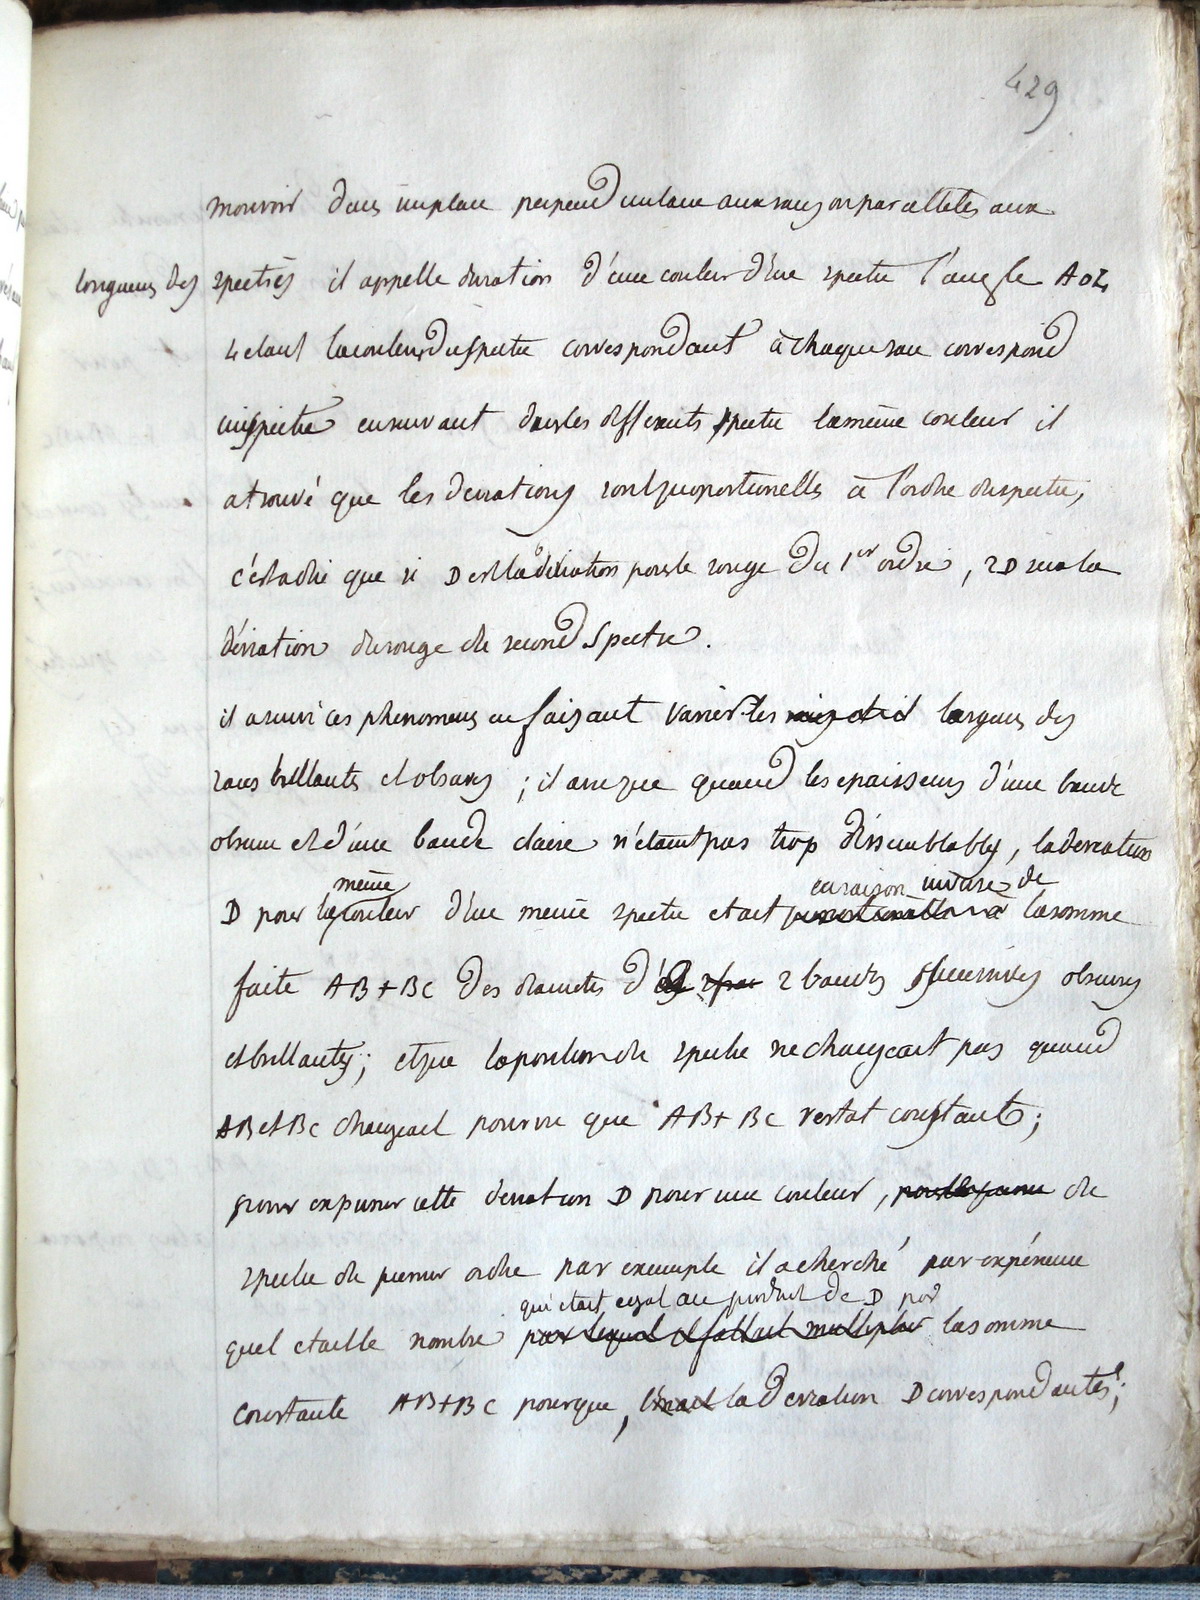 429
mouvoir dans un plan perpendiculaire aux raies ou paralleles aux
longueurs des spectres il appelle deviation d'une couleur d'un spectre l'angle AOL
L etant la couleur du spectre correspondant à chaque raie correspond
un spectre en suivant dans les differents spectre la même couleur il
a trouvé que les deviations sont proportionelles à l'ordre du spectre,
c'est a dire que si D est la deviation pour le rouge du 1er ordre, 2D sera la
déviation du rouge du second spectre.
il a suivi ces phenomenes en faisant varier les largeurs des
raies brillantes et obscures ; il a vu que quand les epaisseurs d'une bande
obscure et d'une bande claire n'étaient pas trop dissemblables, la deviation
même en raison inverse de
D pour la couleur d'un meme spectre etait proportionelle à la somme
faite AB + BC des diametres d' 2 bandes successives obscures
et brillantes ; et que la position du spectre ne changeait pas quand
AB et BC changeait pourvu que AB + BC restat constant ;
pour exprimer cette deviation D pour une couleur, du
spectre du premier ordre par exemple il a cherché par expérience
qui etait egal au produit de D par
quel etait le nombre par lequel il fallait multiplier la somme
constante AB+BC pour que, la deviation D correspondante ;